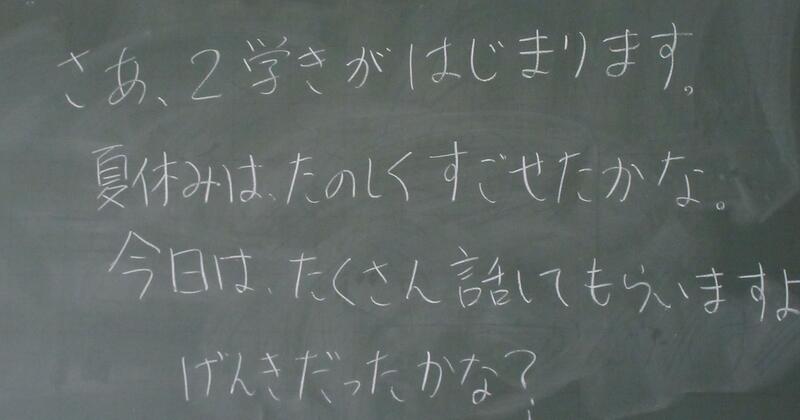 さあ、2学きがはじまります。
夏休みは、たのしくすごせたかな。
今日は、たくさん話してもらいますよ
げんきだったかな?